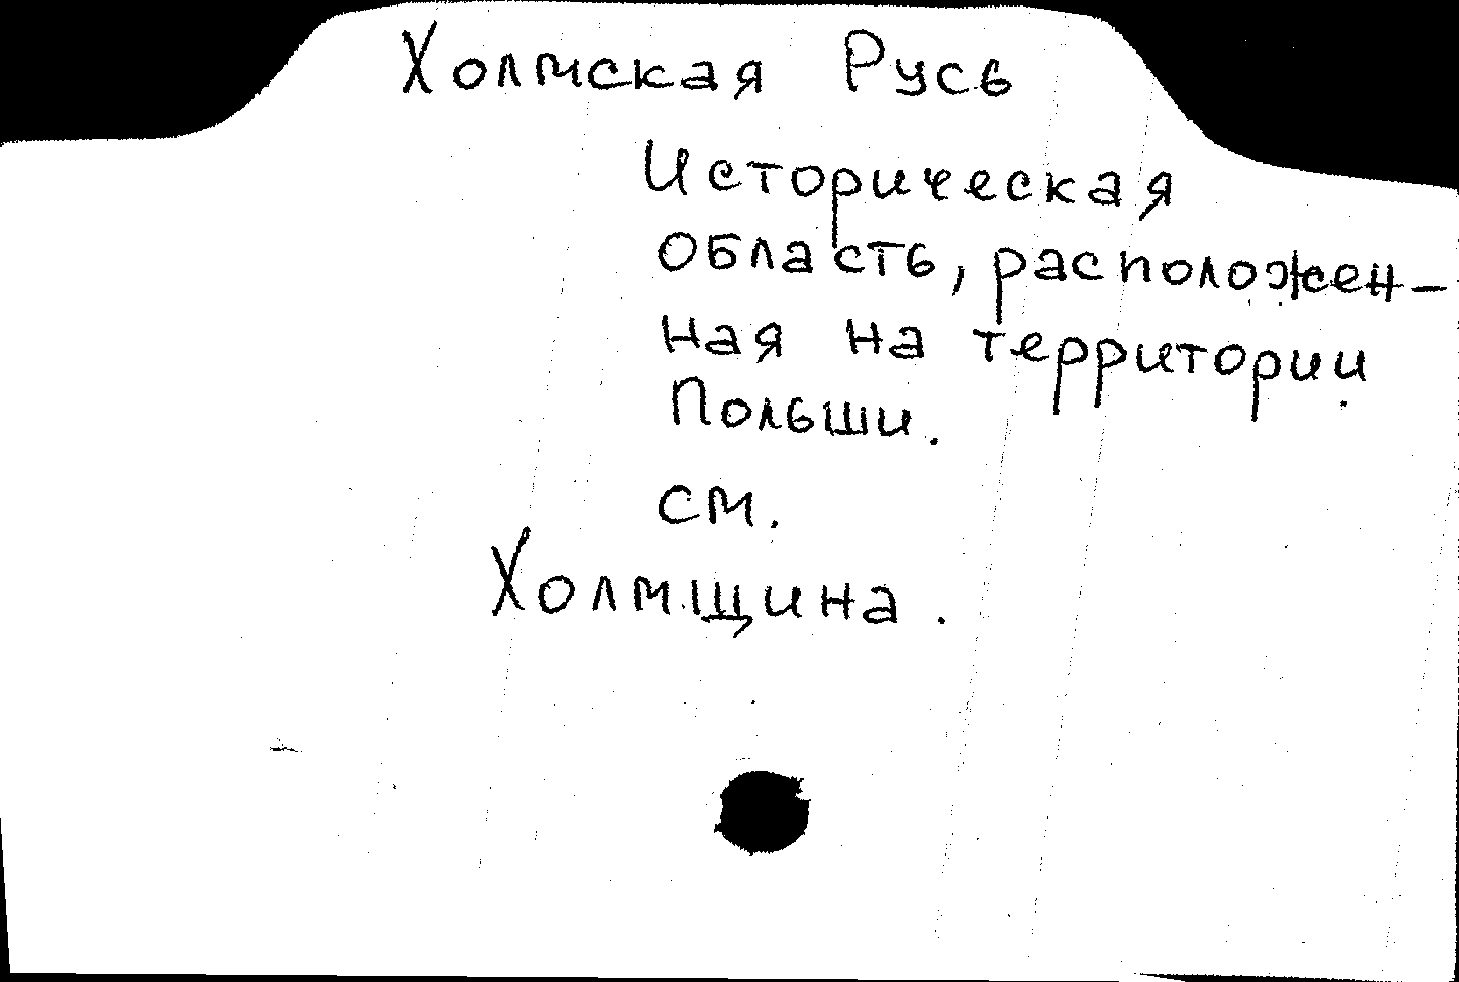 Холмская Русь
Историческая
область, расположен-
ная на территории
Польши.
см.
Холмщина.